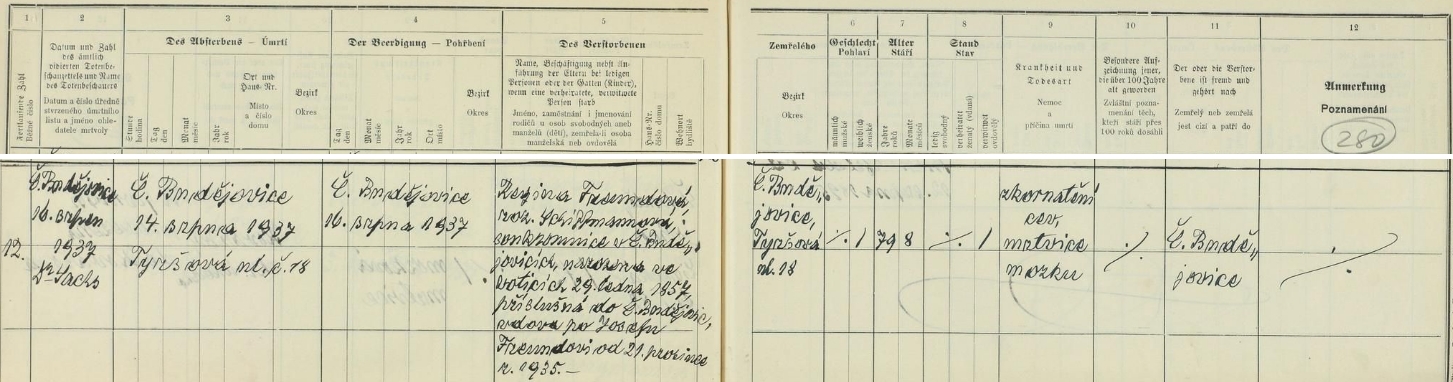 1
2
3
4
5
6
7
8
9
10
11
12
Laufende Zahl
Běžné číslo
Datum und Zahl
des ämtlich
vidierten Totenbe-
schauzettels und Name
des Totenbeschauers
Datum a číslo úředně
stvrzeného úmrtního
listu a jméno ohle-
datele mrtvoly
Des Absterbens — Úmrtí
Stunde
hodina
Tag
den
Monat
měsíc
Jahr
rok
Ort und
Haus-Nr.
Místo
a číslo
domu
Bezirk
Okres
Der Beerdigung — Pohřbení
Tag
den
Monat
měsíc
Jahr
rok
Ort
místo
Bezirk
Okres
Des Verstorbenen
Name, Beschäftigung nebst An-
führung der Eltern bei ledigen
Personen oder der Gatten (Kinder),
wenn eine verheiratete, verwitwete
Person starb
Jméno, zaměstnání i jmenování
rodičů u osob svobodných aneb
manželů (dětí), zemřela-li osoba
manželská neb ovdovělá
Haus-Nr.
číslo domu
Wohnort
bydliště
Zemřelého
Bezirk
Okres
Geschlecht
Pohlaví
männlich
mužské
weiblich
ženské
Alter
Stáří
Jahre
roků
Monate
měsíců
Stand
Stav
ledig
svobodný
verheiratet
ženatý (vdaná)
verwitwet
ovdovělý
Krankheit und
Todesart
Nemoc
a
příčina úmrtí
Besondere Auf-
zeichnung jener,
die über 100 Jahre
alt geworden
Zvláštní pozna-
menání těch,
kteří stáří přes
100 roků dosáhli
Der oder die Verstor-
bene ist fremd und
gehört nach
Zemřelý neb zemřelá
jest cizí a patří do
Anmerkung
Poznamenání
280
12.
Č. Budějovice
16. srpen
1937
Dr. Sachs
Č. Budějovice
14. srpna 1937
Tyršová ul. č. 18
Č. Budějovice
16. srpna 1937
Regina Freundová
roz. Schiffmannová
soukromnice v Č. Budě„
jovicích, narozena ve
Voticích 29. ledna 1857,
příslušná do Č. Budějovic,
vdova po Josefu
Freundovi od 21. prosince
r. 1935.—
Č. Budě„
jovice,
Tyršová
ul. 18
·/. 1
79 8
·/. 1
zkornatění
cev,
mrtvice
mozku
·/.
Č. Budě„
jovice
·/.